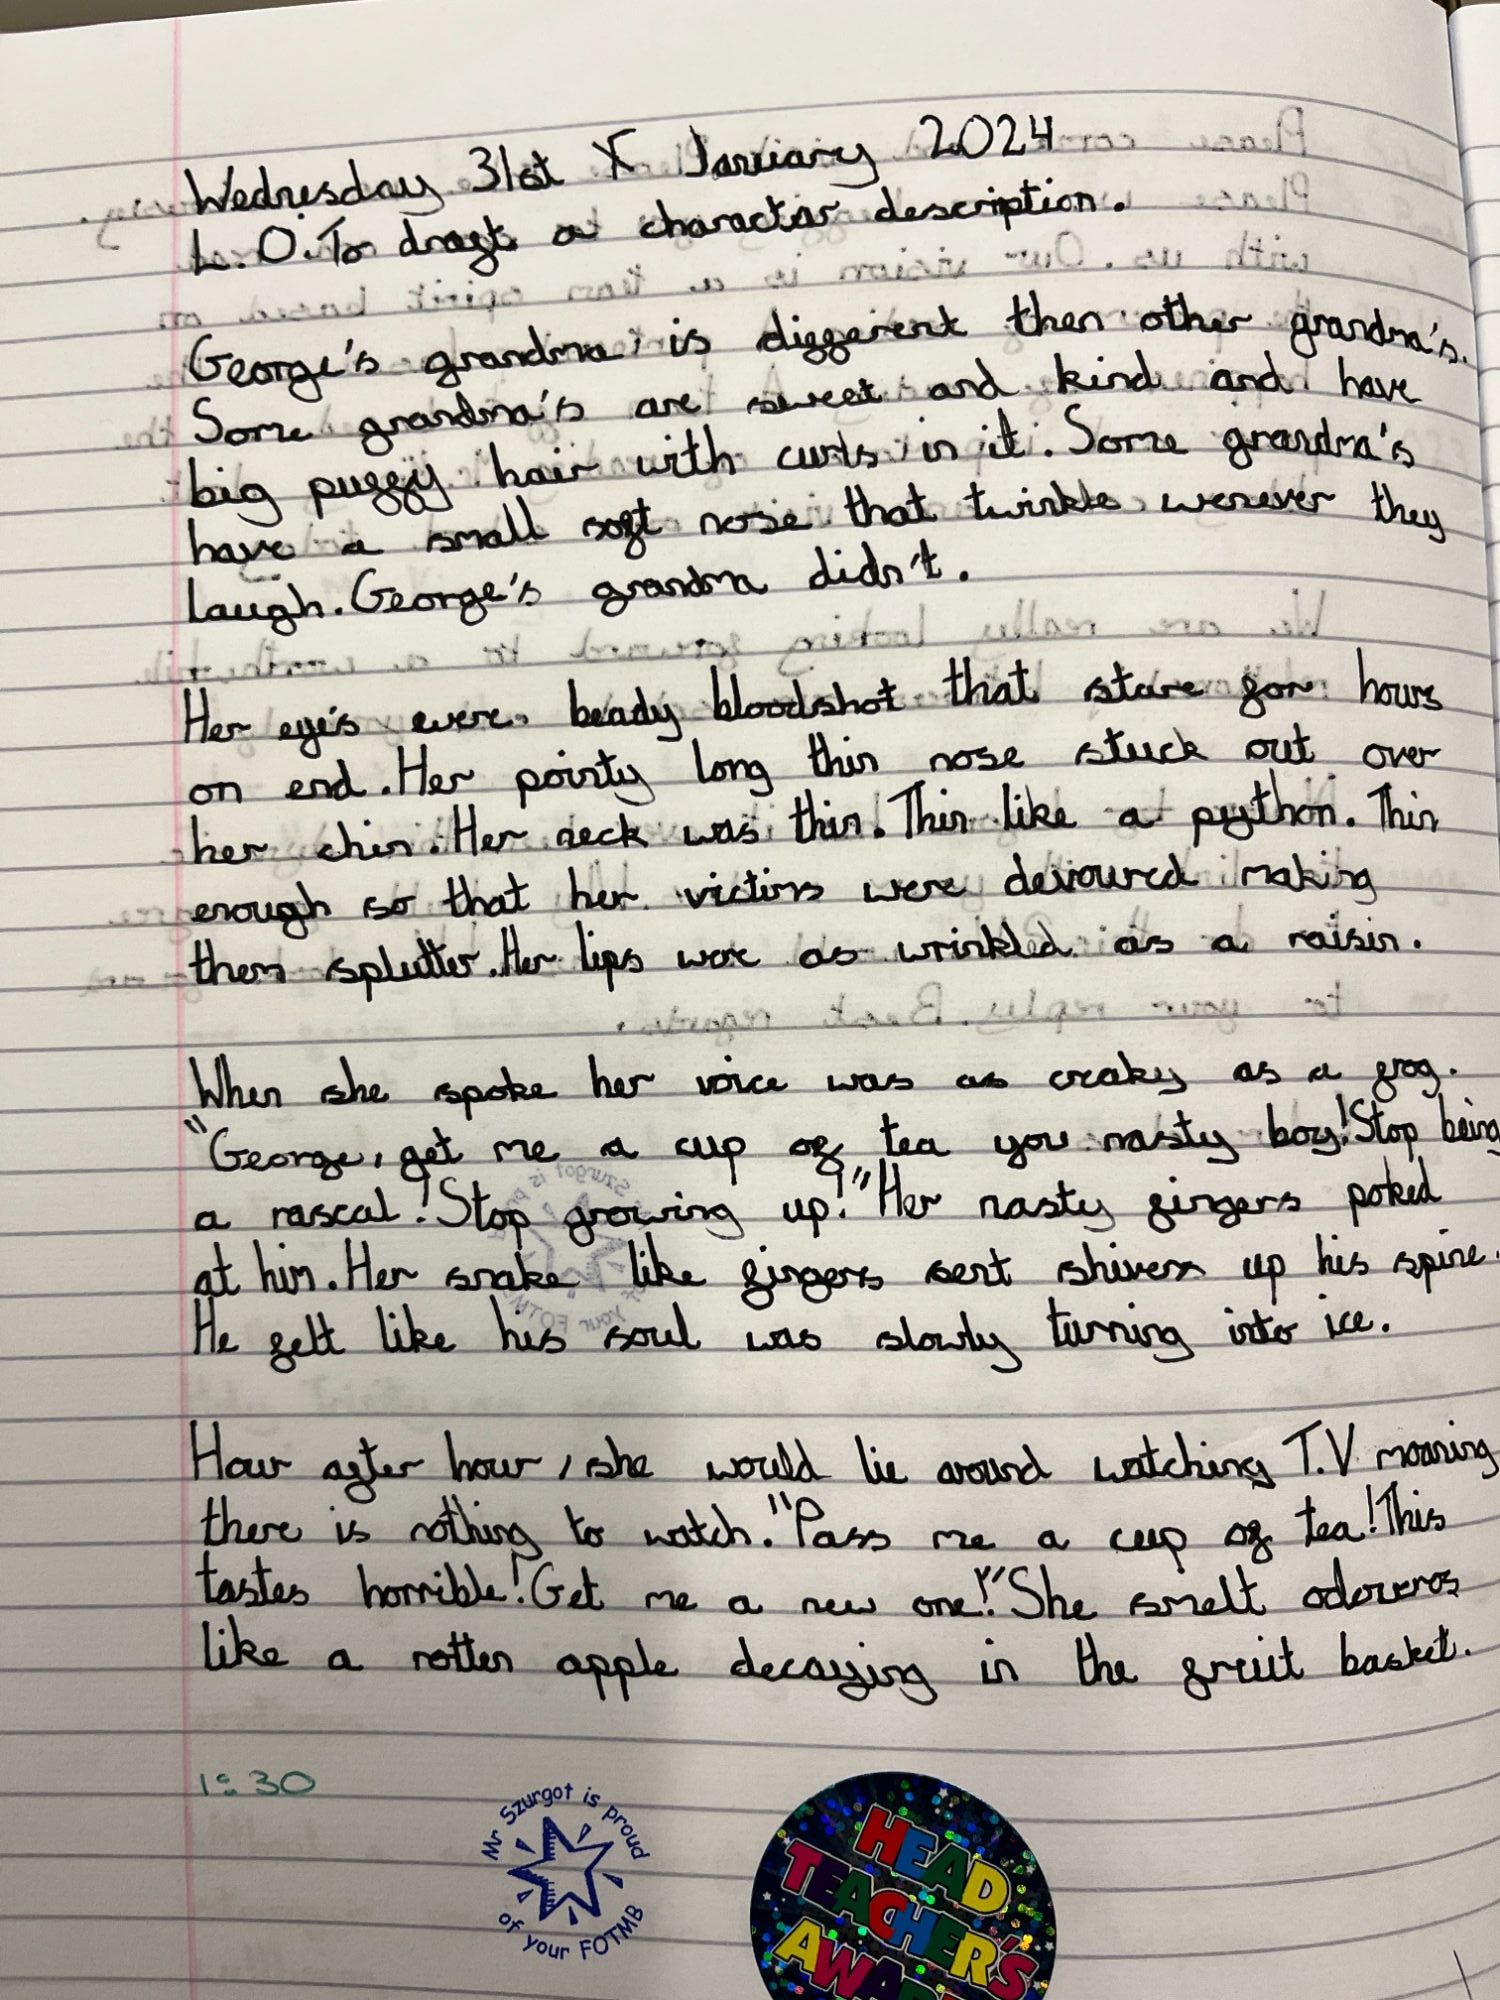 Wednesday 31st January 2024
L.O. To draft a charactar description.
George's grandma is different then other grandma's.
Some grandma's are sweet and kind and have
big puffy hair with curls in it. Some grandma's
have a small soft nose that twinkle wenever they
laugh. George's grandma didn't.
Her eye's were beady bloodshot that stare for hours
on end. Her pointy long thin nose stuck out over
her chin. Her neck was thin. Thin like a python. Thin
enough so that her victims were devoured making
them splutter. Her lips were as wrinkled as a raisin.
When she spoke her voice was as creaky as a frog.
"George, get me a cup of tea you nasty boy! Stop being
a rascal! Stop growing up!" Her nasty fingers poked
at him. Her snake like fingers sent shivers up his spine.
He felt like his soul was slowly turning into ice.
Hour after hour, she would lie around watching T.V moaning
there is nothing to watch. "Pass me a cup of tea! This
tastes horrible! Get me a new one!" She smelt
like a rotten apple decaying in the fruit basket.
1:30
Mr Szurgot is proud
of your FOTMB
HEAD
TEACHER'S